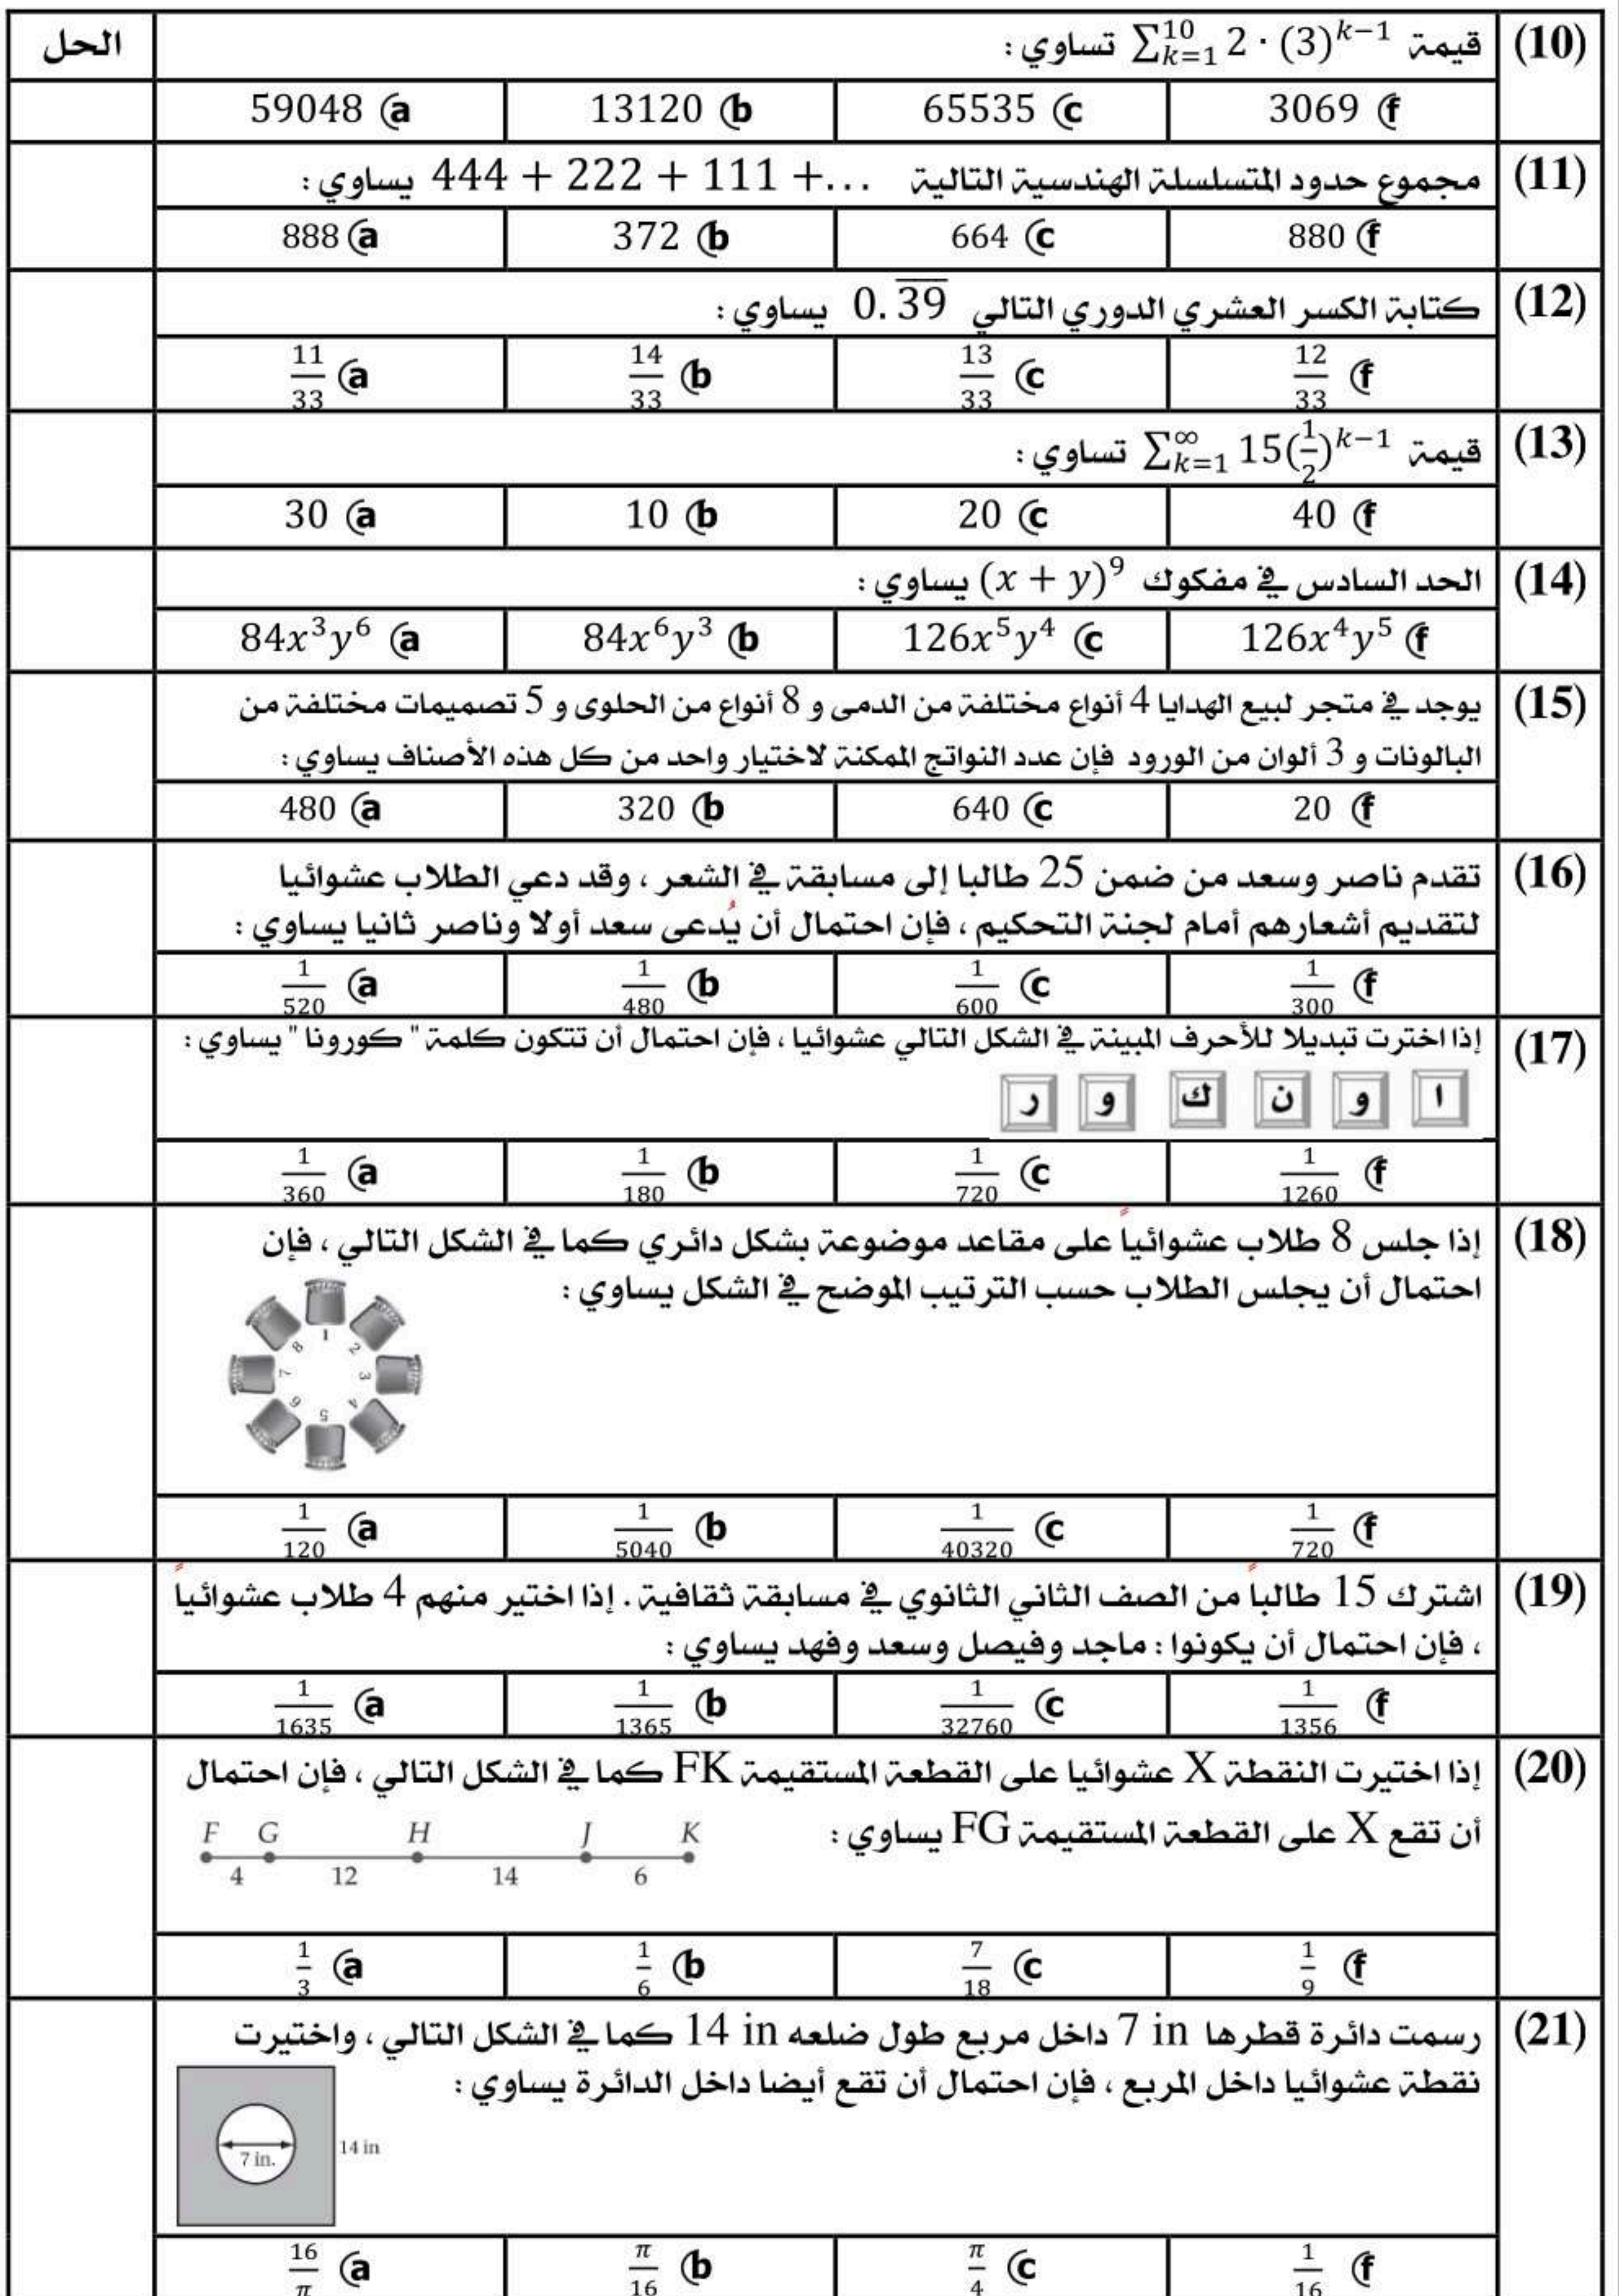 (10) قيمة $\sum_{k=1}^{10} 2 \cdot (3)^{k-1}$ تساوي : الحل
f) 3069 c) 65535 b) 13120 a) 59048
(11) مجموع حدود المتسلسلة الهندسية التالية 444 + 222 + 111 +... يساوي :
f) 880 c) 664 b) 372 a) 888
(12) كتابة الكسر العشري الدوري التالي $0.\overline{39}$ يساوي :
f) $\frac{12}{33}$ c) $\frac{13}{33}$ b) $\frac{14}{33}$ a) $\frac{11}{33}$
(13) قيمة $\sum_{k=1}^{\infty} 15(\frac{1}{2})^{k-1}$ تساوي :
f) 40 c) 20 b) 10 a) 30
(14) الحد السادس في مفكوك $(x + y)^9$ يساوي :
f) $126x^4y^5$ c) $126x^5y^4$ b) $84x^6y^3$ a) $84x^3y^6$
(15) يوجد في متجر لبيع الهدايا 4 أنواع مختلفة من الدمى و 8 أنواع من الحلوى و 5 تصميمات مختلفة من
البالونات و 3 ألوان من الورود فإن عدد النواتج الممكنة لاختيار واحد من كل هذه الأصناف يساوي :
f) 20 c) 640 b) 320 a) 480
(16) تقدم ناصر وسعد من ضمن 25 طالبا إلى مسابقة في الشعر ، وقد دعي الطلاب عشوائيا
لتقديم أشعارهم أمام لجنة التحكيم ، فإن احتمال أن يُدعى سعد أولا وناصر ثانيا يساوي :
f) $\frac{1}{300}$ c) $\frac{1}{600}$ b) $\frac{1}{480}$ a) $\frac{1}{520}$
(17) إذا اخترت تبديلا للأحرف المبينة في الشكل التالي عشوائيا ، فإن احتمال أن تتكون كلمة " كورونا " يساوي :
ا و ن ك و ر
f) $\frac{1}{1260}$ c) $\frac{1}{720}$ b) $\frac{1}{180}$ a) $\frac{1}{360}$
(18) إذا جلس 8 طلاب عشوائياً على مقاعد موضوعة بشكل دائري كما في الشكل التالي ، فإن
احتمال أن يجلس الطلاب حسب الترتيب الموضح في الشكل يساوي :
1 2 3 4 5 6 7 8
f) $\frac{1}{720}$ c) $\frac{1}{40320}$ b) $\frac{1}{5040}$ a) $\frac{1}{120}$
(19) اشترك 15 طالباً من الصف الثاني الثانوي في مسابقة ثقافية . إذا اختير منهم 4 طلاب عشوائياً
، فإن احتمال أن يكونوا : ماجد وفيصل وسعد وفهد يساوي :
f) $\frac{1}{1356}$ c) $\frac{1}{32760}$ b) $\frac{1}{1365}$ a) $\frac{1}{1635}$
(20) إذا اختيرت النقطة X عشوائيا على القطعة المستقيمة FK كما في الشكل التالي ، فإن احتمال
أن تقع X على القطعة المستقيمة FG يساوي :
F G H J K
4 12 14 6
f) $\frac{1}{9}$ c) $\frac{7}{18}$ b) $\frac{1}{6}$ a) $\frac{1}{3}$
(21) رسمت دائرة قطرها 7 in داخل مربع طول ضلعه 14 in كما في الشكل التالي ، واختيرت
نقطة عشوائيا داخل المربع ، فإن احتمال أن تقع أيضا داخل الدائرة يساوي :
7 in. 14 in
f) $\frac{1}{16}$ c) $\frac{\pi}{4}$ b) $\frac{\pi}{16}$ a) $\frac{16}{\pi}$